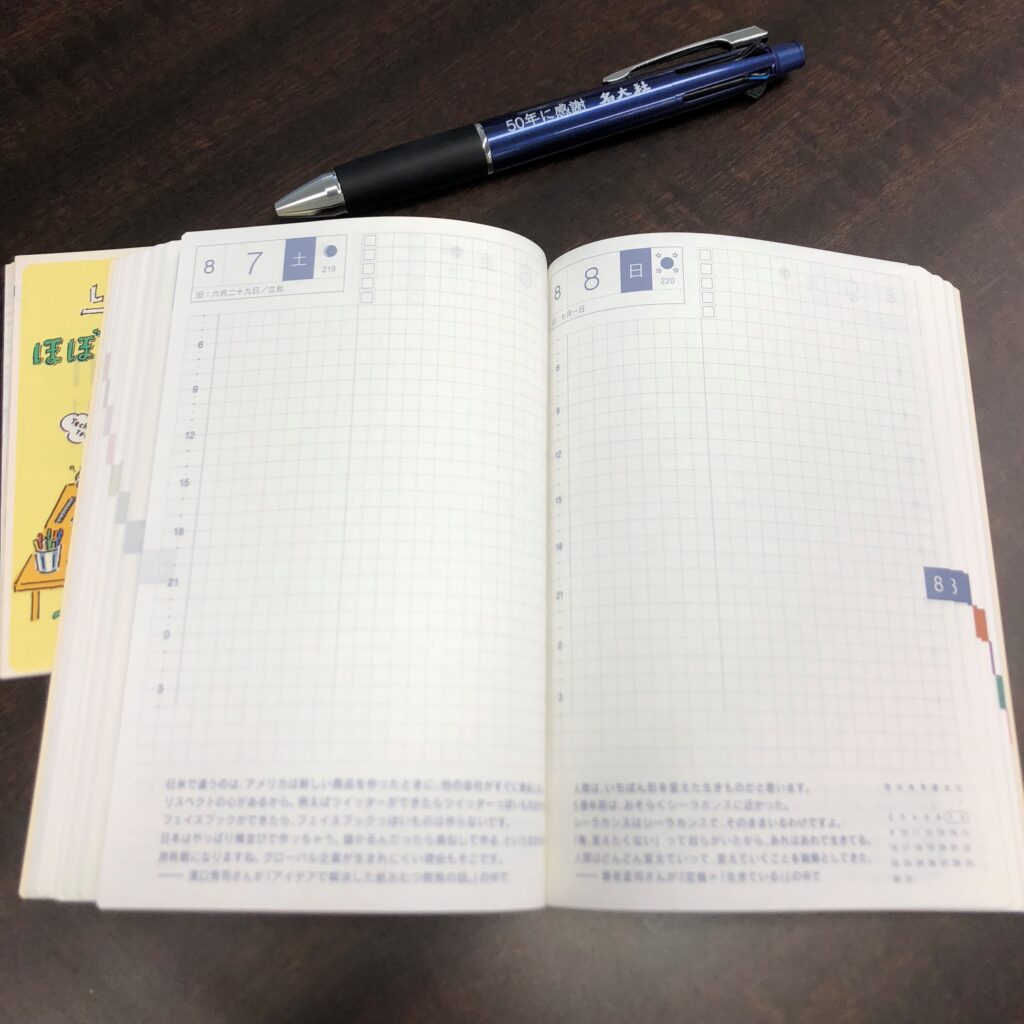 50年に感謝 名大社
8 7 土
219
旧/六月二十九日/立秋
6
9
12
15
18
21
0
3
8 8 日
220
旧/七月一日
6
9
12
15
18
21
0
3
8
ほぼ
日米で違うのは、アメリカは新しい商品を作ったときに、他の会社がすぐに真似
リスペクトの心があるから。例えばツイッターができたらツイッターっぽいもの
フェイスブックができたら、フェイスブックっぽいものは作らないです。
日本はやっぱり横並びで作っちゃう。儲かるんだったら真似して作る、という
消耗戦になりますね。グローバル企業が生まれにくい理由もそこです。
—— 濱口秀司さんが『アイデアで解決した紙おむつ開発の話。』の中で
人間は、いちばん形を変えた生きものだと思います。
5億年前は、おそらくシーラカンスに近かった。
シーラカンスはシーラカンスで、そのままいるわけですよ。
「俺、変えたくない」って怒らがいたから、あれはあれで生きてる。
人間はどんどん変えていって、変えていくことを戦略としてきた。